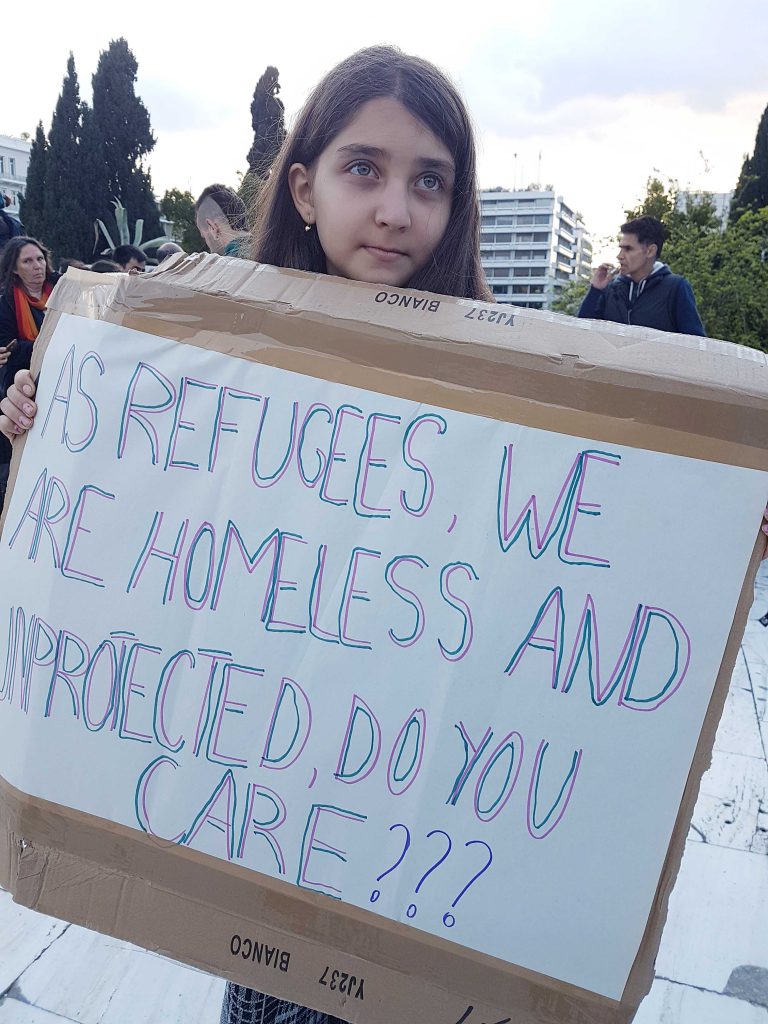 BIANCO YJ237
AS REFUGEES, WE
ARE HOMELESS AND
UNPROTECTED, DO YOU
CARE???
BIANCO YJ237